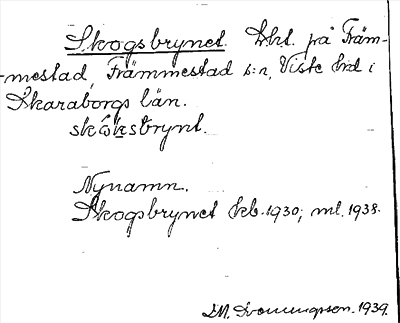 Skogsbrynet. Lht. på Främ-
mestad, Främmestad s:n, Viste hd i
Skaraborgs län.
skoksbrynt.
Nynamn.
Skogsbrynet kb. 1930; ml. 1938.
1939.